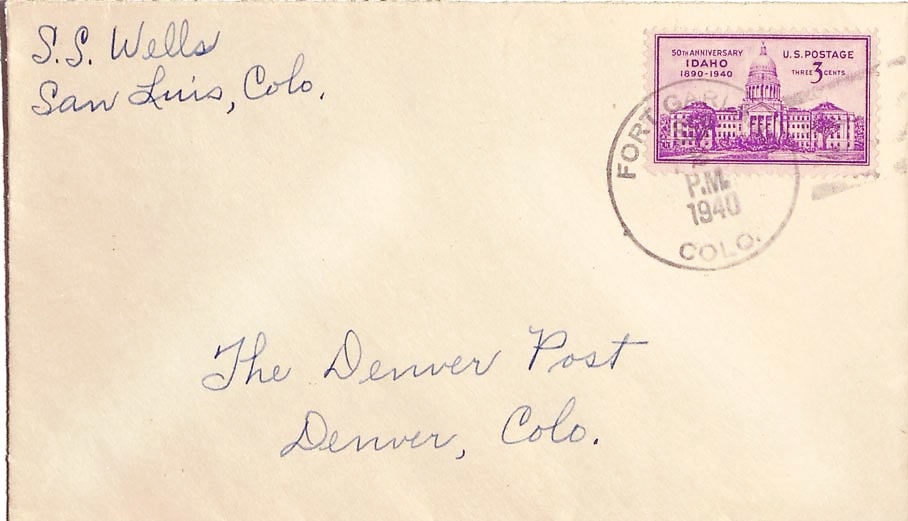 S.S. Wells
San Luis, Colo.
50TH ANNIVERSARY
IDAHO
1890-1940
U.S. POSTAGE
THREE 3 CENTS
FORT
P.M.
1940
COLO.
The Denver Post
Denver, Colo.